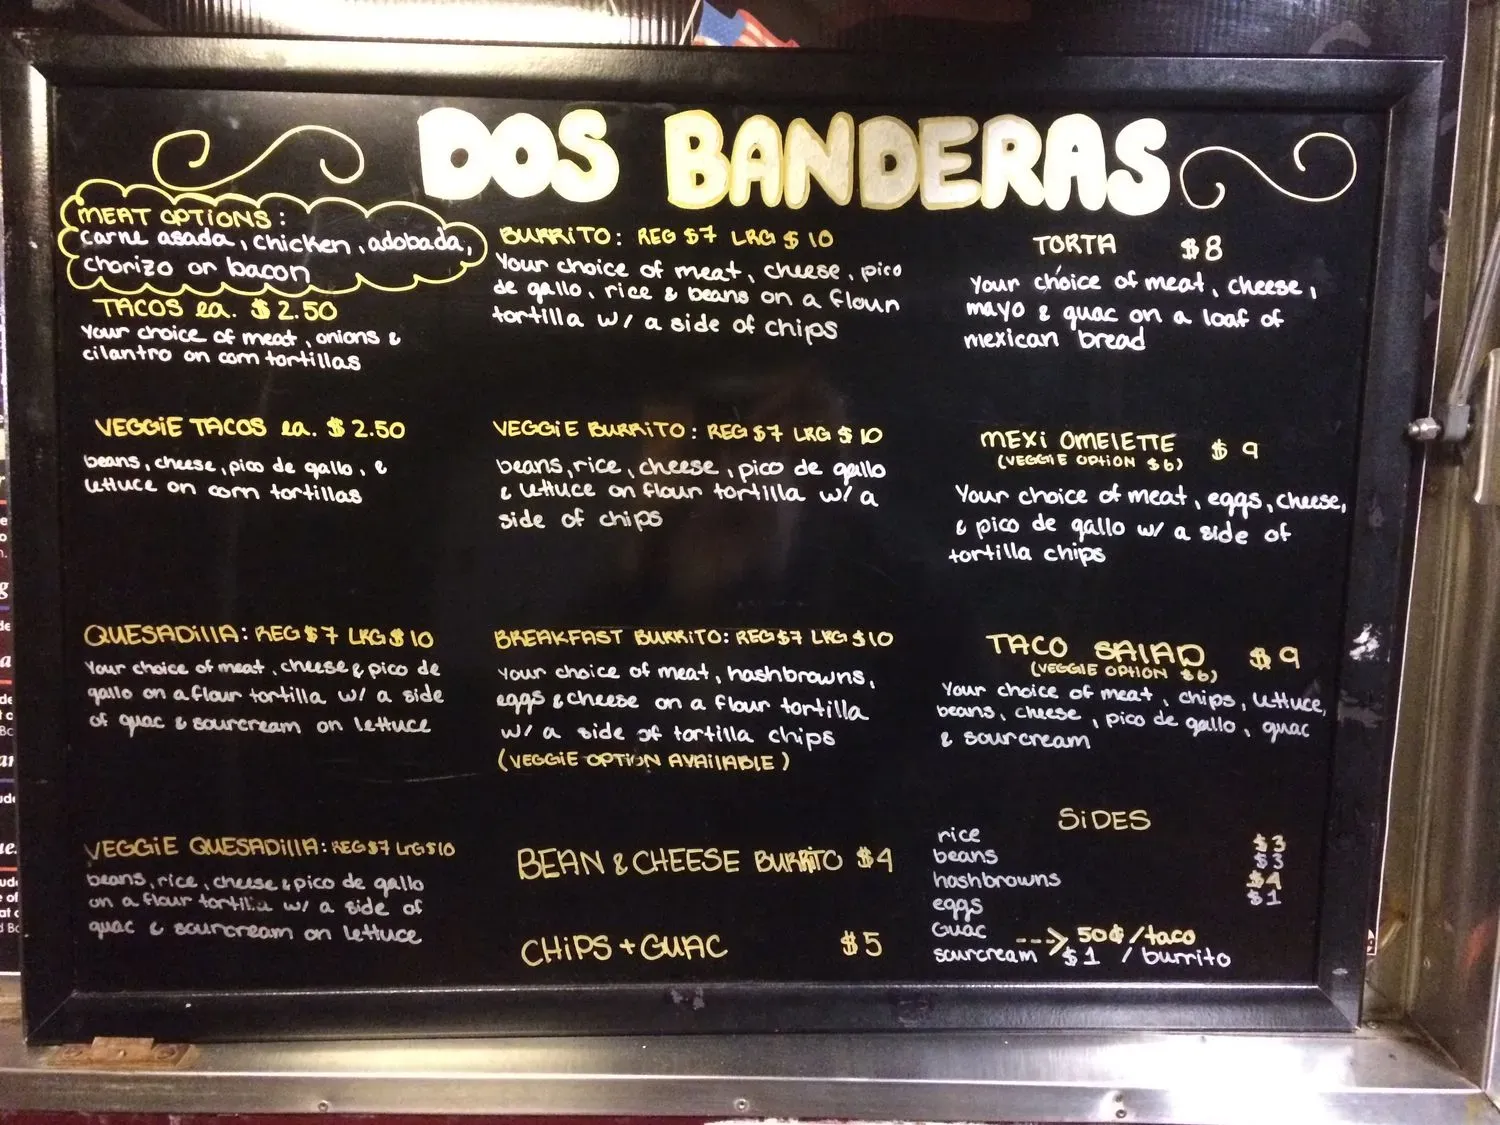 DOS BANDERAS
MEAT OPTIONS:
carne asada, chicken, adobada,
chorizo or bacon
TACOS ea. $2.50
Your choice of meat, onions &
cilantro on corn tortillas
VEGGIE TACOS ea. $2.50
beans, cheese, pico de gallo, &
lettuce on corn tortillas
QUESADILLA: REG $7 LRG $10
Your choice of meat, cheese & pico de
gallo on a flour tortilla w/ a side
of guac & sourcream on lettuce
VEGGIE QUESADILLA: REG $7 LRG $10
beans, rice, cheese & pico de gallo
on a flour tortilla w/ a side of
guac & sourcream on lettuce
BURRITO: REG $7 LRG $10
Your choice of meat, cheese, pico
de gallo, rice & beans on a flour
tortilla w/ a side of chips
VEGGIE BURRITO: REG $7 LRG $10
beans, rice, cheese, pico de gallo
& lettuce on flour tortilla w/ a
side of chips
BREAKFAST BURRITO: REG $7 LRG $10
Your choice of meat, hashbrowns,
eggs & cheese on a flour tortilla
w/ a side of tortilla chips
(VEGGIE OPTION AVAILABLE)
BEAN & CHEESE BURRITO $4
CHIPS + GUAC $5
TORTA $8
Your choice of meat, cheese,
mayo & guac on a loaf of
mexican bread
MEXI OMELETTE $9
(VEGGIE OPTION $6)
Your choice of meat, eggs, cheese,
& pico de gallo w/ a side of
tortilla chips
TACO SALAD $9
(VEGGIE OPTION $6)
Your choice of meat, chips, lettuce,
beans, cheese, pico de gallo, guac
& sourcream
SIDES
rice $3
beans $3
hashbrowns $4
eggs $1
Guac ---> 50¢/taco
sourcream $1 / burrito